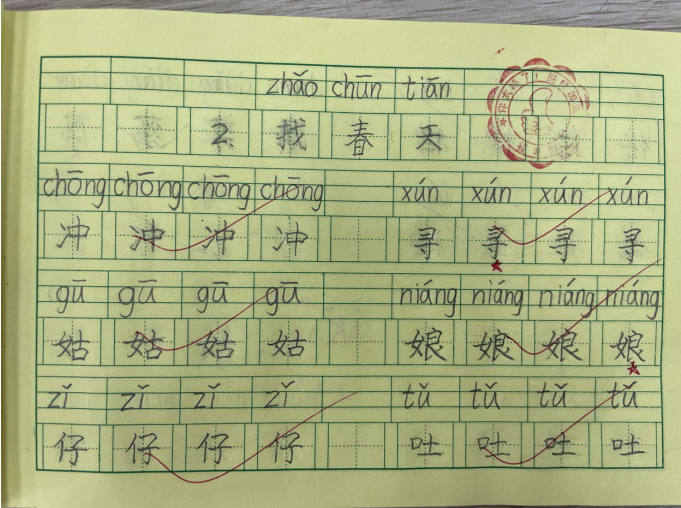 zhǎo chūn tiān
2 找 春 天
chōng chōng chōng chōng xún xún xún xún
冲 冲 冲 冲 寻 寻 寻 寻
gū gū gū gū niáng niáng niáng niáng
姑 姑 姑 姑 娘 娘 娘 娘
zǐ zǐ zǐ zǐ tǔ tǔ tǔ tǔ
仔 仔 仔 仔 吐 吐 吐 吐